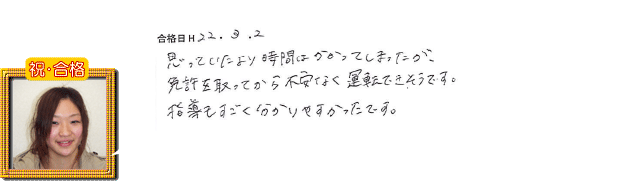 合格日 H 22.3.2
思っていたより時間はかかってしまったが、
免許を取ってから不安なく運転できそうです。
指導もすごく分かりやすかったです。
祝・合格